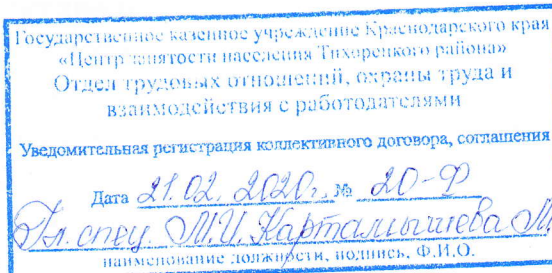 Государственное казенное учреждение Краснодарского края
«Центр занятости населения Тихорецкого района»
Отдел трудовых отношений, охраны труда и
взаимодействия с работодателями
Уведомительная регистрация коллективного договора, соглашения
Дата 21.02.2020г. № 20-Ф
Гл. спец. М.И. Карталышева
наименование должности, подпись, Ф.И.О.